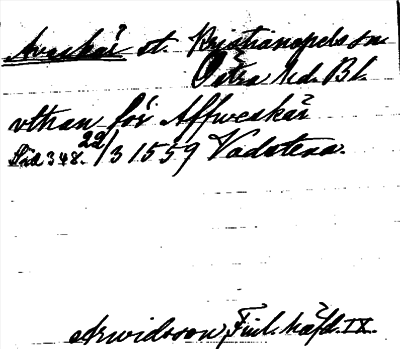 Avaskär st. Kristianopels sn
Östra hd. Bl.
vthan för Affweskär
Sid 348. 22/3 1559 Vadstena.
Arwidsson, Finl. häfd. IX.